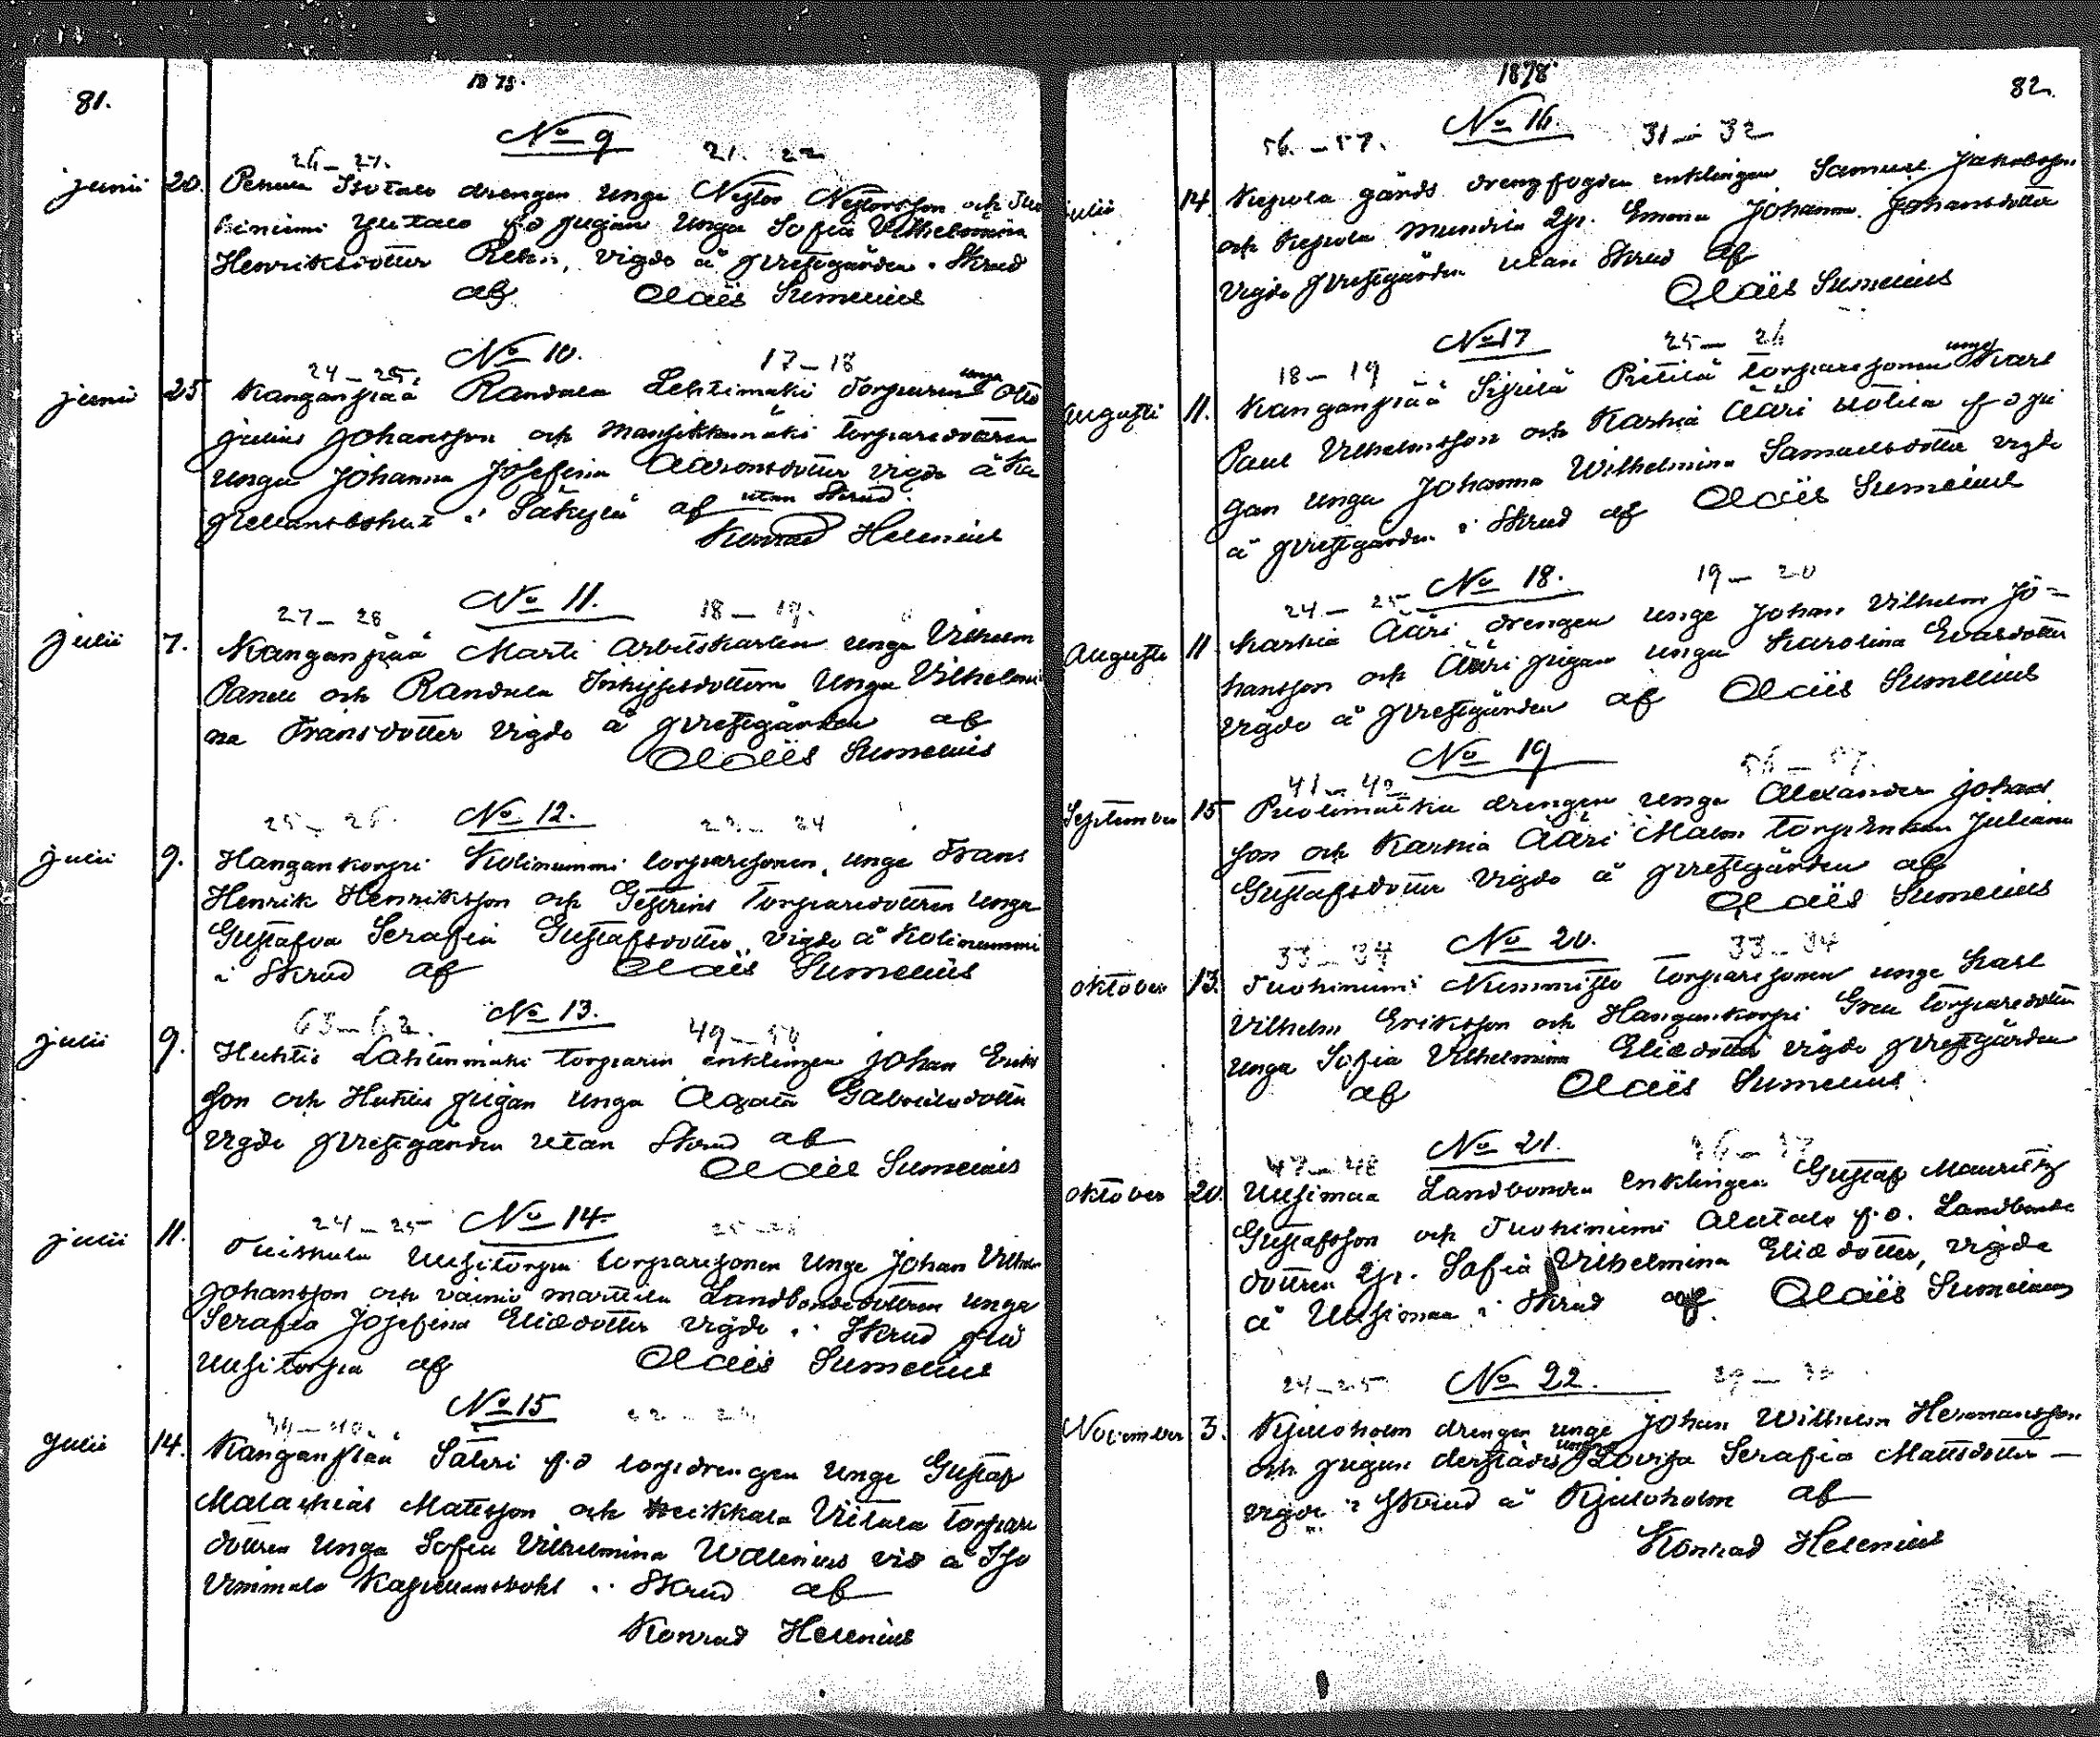 81.
1878.
No 9
26 – 27. 21. 22
junii 20. Isotalo drengen unge Nestor Nestorsson och Tuo
hiniemi ylitalo f.d pigan unga Sofia Vilhelmina
Henriksdotter Rehn, vigde å prestgården i Skrud
af Claës Sumelius
No 10.
24 – 25. 17 – 18
junii 25 Kanganpää Randala Lehtimäki Torparen unge Otto
julius Johansson och Mansikkamäki torparedottren
unga Johanna Josefina Aaronsdotter vigde å Ka
pellansbohl i Säkylä af utan Skrud.
Konrad Helenius
No 11.
27 – 28 18 – 19.
julii 7. Kanganpää Marti arbetskarlen unge Vilhelm
och Randala Inhysesdottern Unga Vilhelmi
na Fransdotter vigde å prestgården af
Claës Sumelius
No 12.
25 – 26. 23 – 24
julii 9. Hangankorpi Kolinummi torparesonen, unge Frans
Henrik Henriksson och torparedottren unga
Gustafva Serafia Gustafsdotter, vigde å Kolinummi
i Skrud af Claës Sumelius
No 13.
49 – 50
julii 9. Huhtis Lähtenmäki torparen enklingen johan Eriks
son och Huhtis pigan unga Agata Gabrielsdotter
vigde prestgården utan Skrud af
Claës Sumelius
No 14.
24 – 25
julii 11. Tuiskula Uusitorpa torparesonen Unge Johan Vilhelm
Johansson och vainio marttila Landbondedottren unga
Serafia Josefina Eliædotter vigde i Skrud på
Uusitorpa af Claës Sumelius
No 15
39 – 40.
Julii 14. Kanganpää Säteri f.d torpdrengen unge Gustaf
Malachias Matsson och Heikkala Viitala torpare
dottren unga Sofia Vilhelmina Wallenius vid å Iso
Vimmala Kapellansbohl i Skrud af
Konrad Helenius
1878. 82.
No 16.
56. – 57. 31 – 32
julii 14 Kepola gårds drengfogden enklingen Samuel Jakobsson
och Kepola mundila Emma Johanna Johansdotter
vigde prestgården utan Skrud af
Claës Sumelius
No 17
18 – 19 25 – 26
Augusti 11. Kanganpää Sipilä Pietilä torparesonen unge Karl
Paul Vilhelmsson och Karhia Ääri uotila f d pi
gan unga Johanna Wilhelmina Samuelsdotter vigde
å prestgården i Skrud af Claës Sumelius
No 18.
24 – 25 19 – 20
Augusti 11 Karhia Ääri drengen unge Johan Vilhelm Jo=
hansson och Ääri pigan unga Karolina Evasdotter
vigde å prestgården af Claës Sumelius
No 19
41 – 42
September 15 Puolimatka drengen unge Alexander johans
son och Karhia Ääri Malm Juliana
Gustafsdotter vigde å prestgården af
Claës Sumelius
No 20.
33 – 34 33 – 34
Oktober 13. Tuohiniemi Nummisto torparesonen unge Karl
Vilhelm Eriksson och Hangankorpi torparedottren
unga Sofia Vilhelmina Eliædotter vigde prestgården
af Claës Sumelius
No 21.
47 – 48
Oktober 20. Uusimaa Landbonden Enklingen Gustaf Mauritz
Gustafsson och Tuohiniemi Alatalo f.d. Landbonde
dottren Sofia Vilhelmina Eliædotter, vigde
å Uusimaa i Skrud af Claës Sumelius
No 22.
24 – 25 29 – 30
November 3. Kjuloholm drengen unge johan Wilhelm Hermansson
och pigan derstädes unga Lovisa Serafia Mattsdotter –
vigde i Skrud å Kjuloholm af
Konrad Helenius